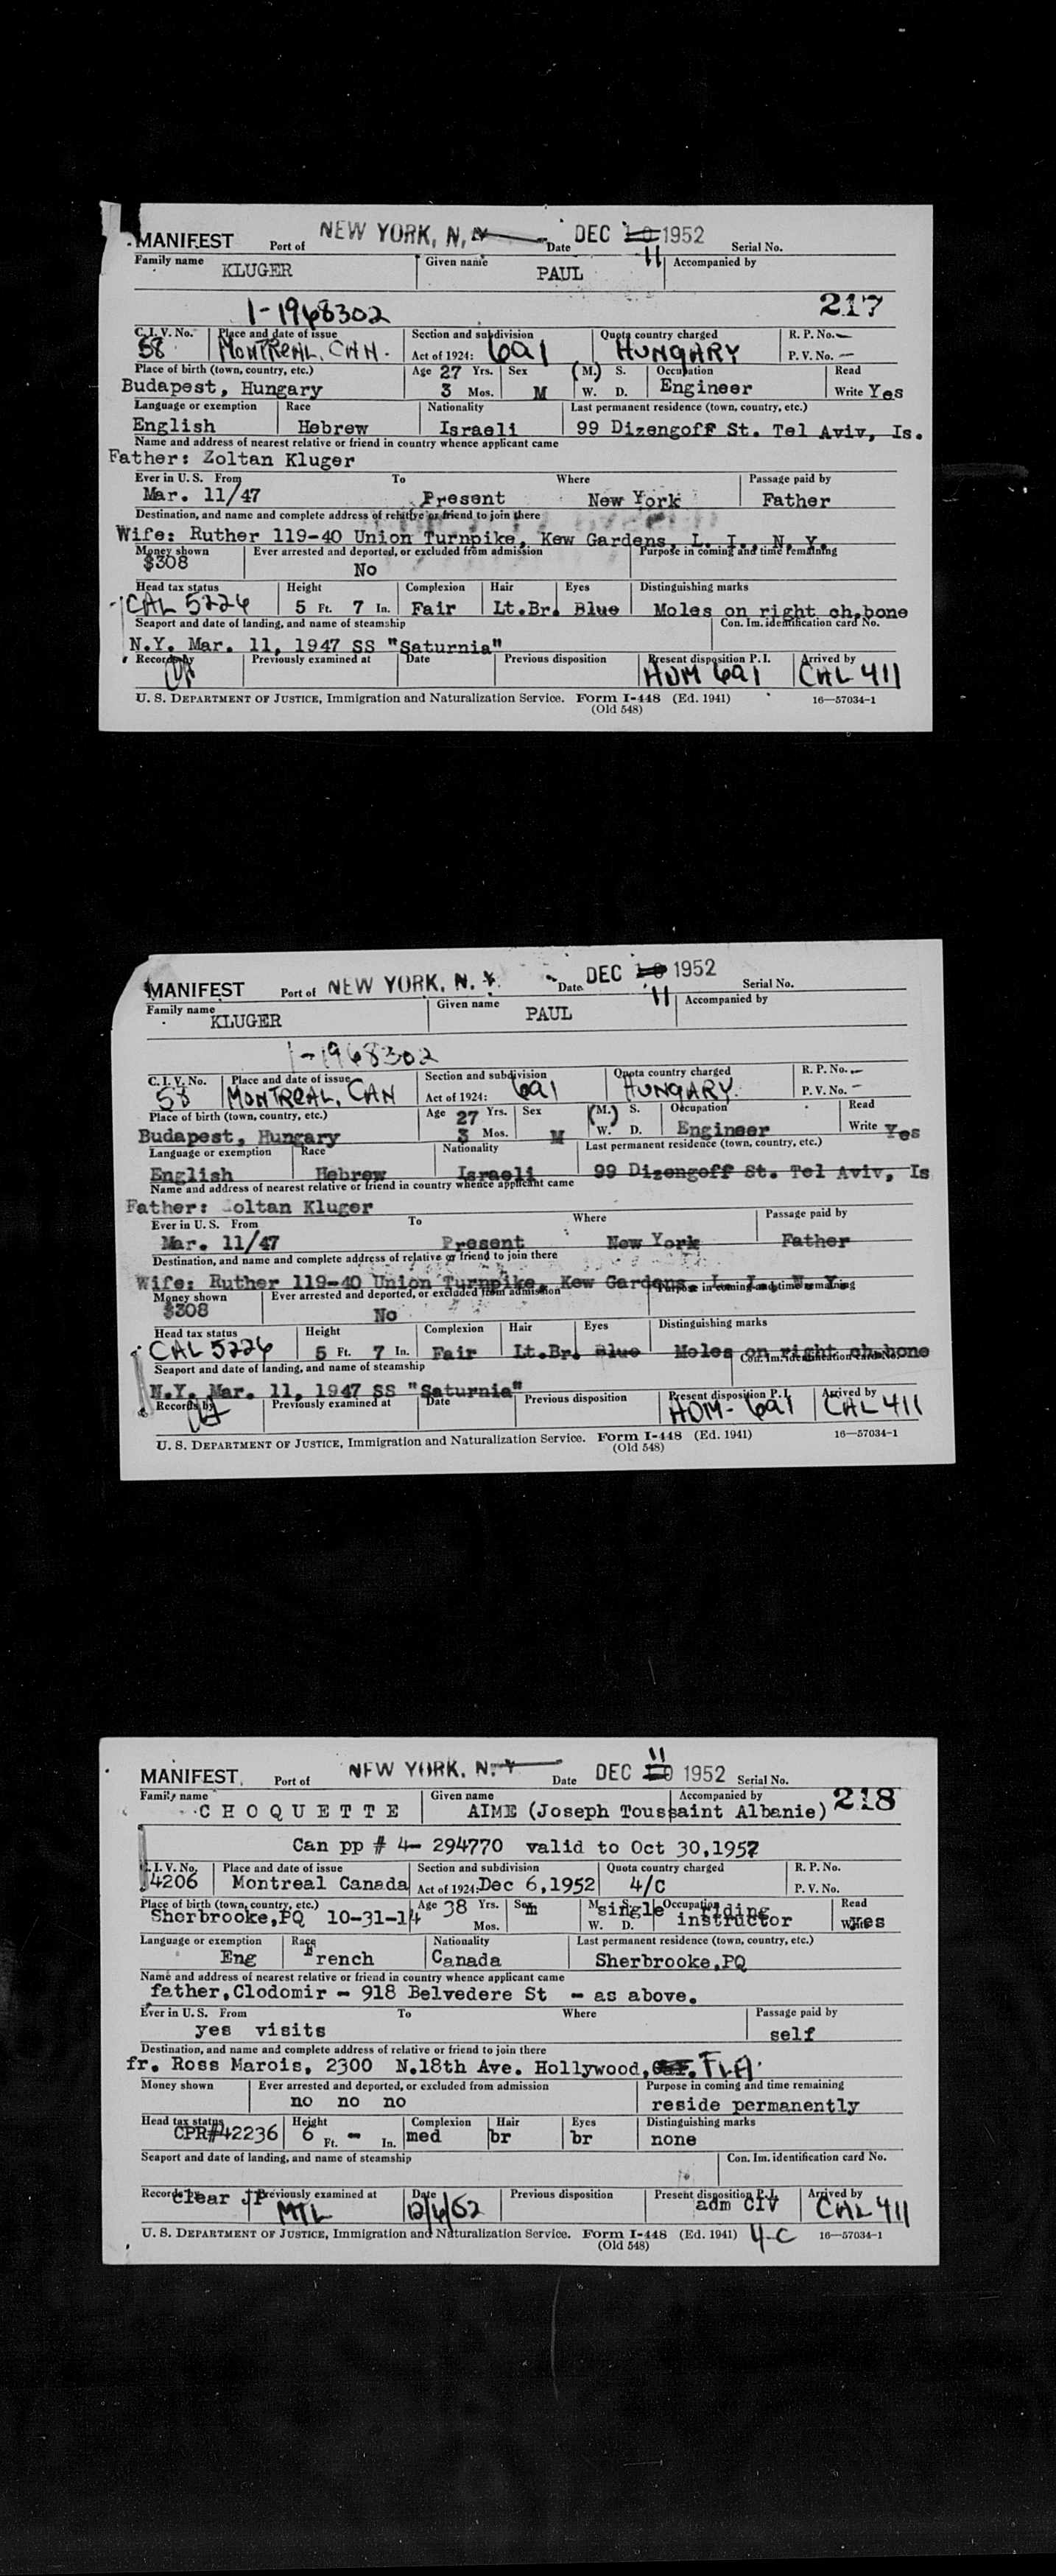 MANIFEST Port of NEW YORK, N. Y Date DEC 10 1952 Serial No.
11
Family name KLUGER Given name PAUL Accompanied by
1-1968302 217
C. I. V. No. 58 Place and date of issue MONTREAL, CAN. Section and subdivision Act of 1924: 6a1 Quota country charged HUNGARY R. P. No. — P. V. No. —
Place of birth (town, country, etc.) Budapest, Hungary Age 27 Yrs. 3 Mos. Sex M (M.) S. W. D. Occupation Engineer Read Write Yes
Language or exemption English Race Hebrew Nationality Israeli Last permanent residence (town, country, etc.) 99 Dizengoff St. Tel Aviv, Is.
Name and address of nearest relative or friend in country whence applicant came
Father: Zoltan Kluger
Ever in U. S. From Mar. 11/47 To Present Where New York Passage paid by Father
Destination, and name and complete address of relative or friend to join there
Wife: Ruther 119-40 Union Turnpike, Kew Gardens, L. I., N. Y.
Money shown $308 Ever arrested and deported, or excluded from admission No Purpose in coming and time remaining
Head tax status CAL 5226 Height 5 Ft. 7 In. Complexion Fair Hair Lt.Br. Eyes Blue Distinguishing marks Moles on right ch.bone
Seaport and date of landing, and name of steamship Con. Im. identification card No.
N.Y. Mar. 11, 1947 SS "Saturnia"
Records by Previously examined at Date Previous disposition Present disposition P. I. 6a1 Arrived by CAL 411
U. S. DEPARTMENT OF JUSTICE, Immigration and Naturalization Service. Form I-448 (Ed. 1941) 16—57034-1
(Old 548)
MANIFEST Port of NEW YORK, N. Y. Date DEC 10 1952 Serial No.
11
Family name KLUGER Given name PAUL Accompanied by
1-1968302
C. I. V. No. 58 Place and date of issue MONTREAL, CAN Section and subdivision Act of 1924: 6a1 Quota country charged HUNGARY R. P. No. — P. V. No. —
Place of birth (town, country, etc.) Budapest, Hungary Age 27 Yrs. 3 Mos. Sex M (M.) S. W. D. Occupation Engineer Read Write Yes
Language or exemption English Race Hebrew Nationality Israeli Last permanent residence (town, country, etc.) 99 Dizengoff St. Tel Aviv, Is
Name and address of nearest relative or friend in country whence applicant came
Father: Zoltan Kluger
Ever in U. S. From Mar. 11/47 To Present Where New York Passage paid by Father
Destination, and name and complete address of relative or friend to join there
Wife: Ruther 119-40 Union Turnpike, Kew Gardens, L. I., N. Y.
Money shown $308 Ever arrested and deported, or excluded from admission No Purpose in coming and time remaining
Head tax status CAL 5226 Height 5 Ft. 7 In. Complexion Fair Hair Lt.Br. Eyes Blue Distinguishing marks Moles on right ch.bone
Seaport and date of landing, and name of steamship Con. Im. identification card No.
N.Y. Mar. 11, 1947 SS "Saturnia"
Records by Previously examined at Date Previous disposition Present disposition P. I. 6a1 Arrived by CAL 411
U. S. DEPARTMENT OF JUSTICE, Immigration and Naturalization Service. Form I-448 (Ed. 1941) 16—57034-1
(Old 548)
11
MANIFEST Port of NEW YORK, N. Y Date DEC 10 1952 Serial No.
Family name CHOQUETTE Given name AIME (Joseph Toussaint Albanie) Accompanied by 218
Can pp # 4- 294770 valid to Oct 30,1957
C. I. V. No. 4206 Place and date of issue Montreal Canada Section and subdivision Act of 1924: Dec 6,1952 Quota country charged 4/C R. P. No. P. V. No.
Place of birth (town, country, etc.) Sherbrooke,PQ 10-31-14 Age 38 Yrs. Mos. Sex m M. S. W. D. single Occupation riding instructor Read Write yes
Language or exemption Eng Race French Nationality Canada Last permanent residence (town, country, etc.) Sherbrooke,PQ
Name and address of nearest relative or friend in country whence applicant came
father,Clodomir - 918 Belvedere St - as above.
Ever in U. S. From yes visits To Where Passage paid by self
Destination, and name and complete address of relative or friend to join there
fr. Ross Marois, 2300 N.18th Ave. Hollywood, FLA.
Money shown Ever arrested and deported, or excluded from admission no no no Purpose in coming and time remaining reside permanently
Head tax status CPR#42236 Height 6 Ft. - In. Complexion med Hair br Eyes br Distinguishing marks none
Seaport and date of landing, and name of steamship Con. Im. identification card No.
Records by clear JP Previously examined at MTL Date 12/6/52 Previous disposition Present disposition P. I. adm CIV Arrived by CAL 411
U. S. DEPARTMENT OF JUSTICE, Immigration and Naturalization Service. Form I-448 (Ed. 1941) 4-C 16—57034-1
(Old 548)